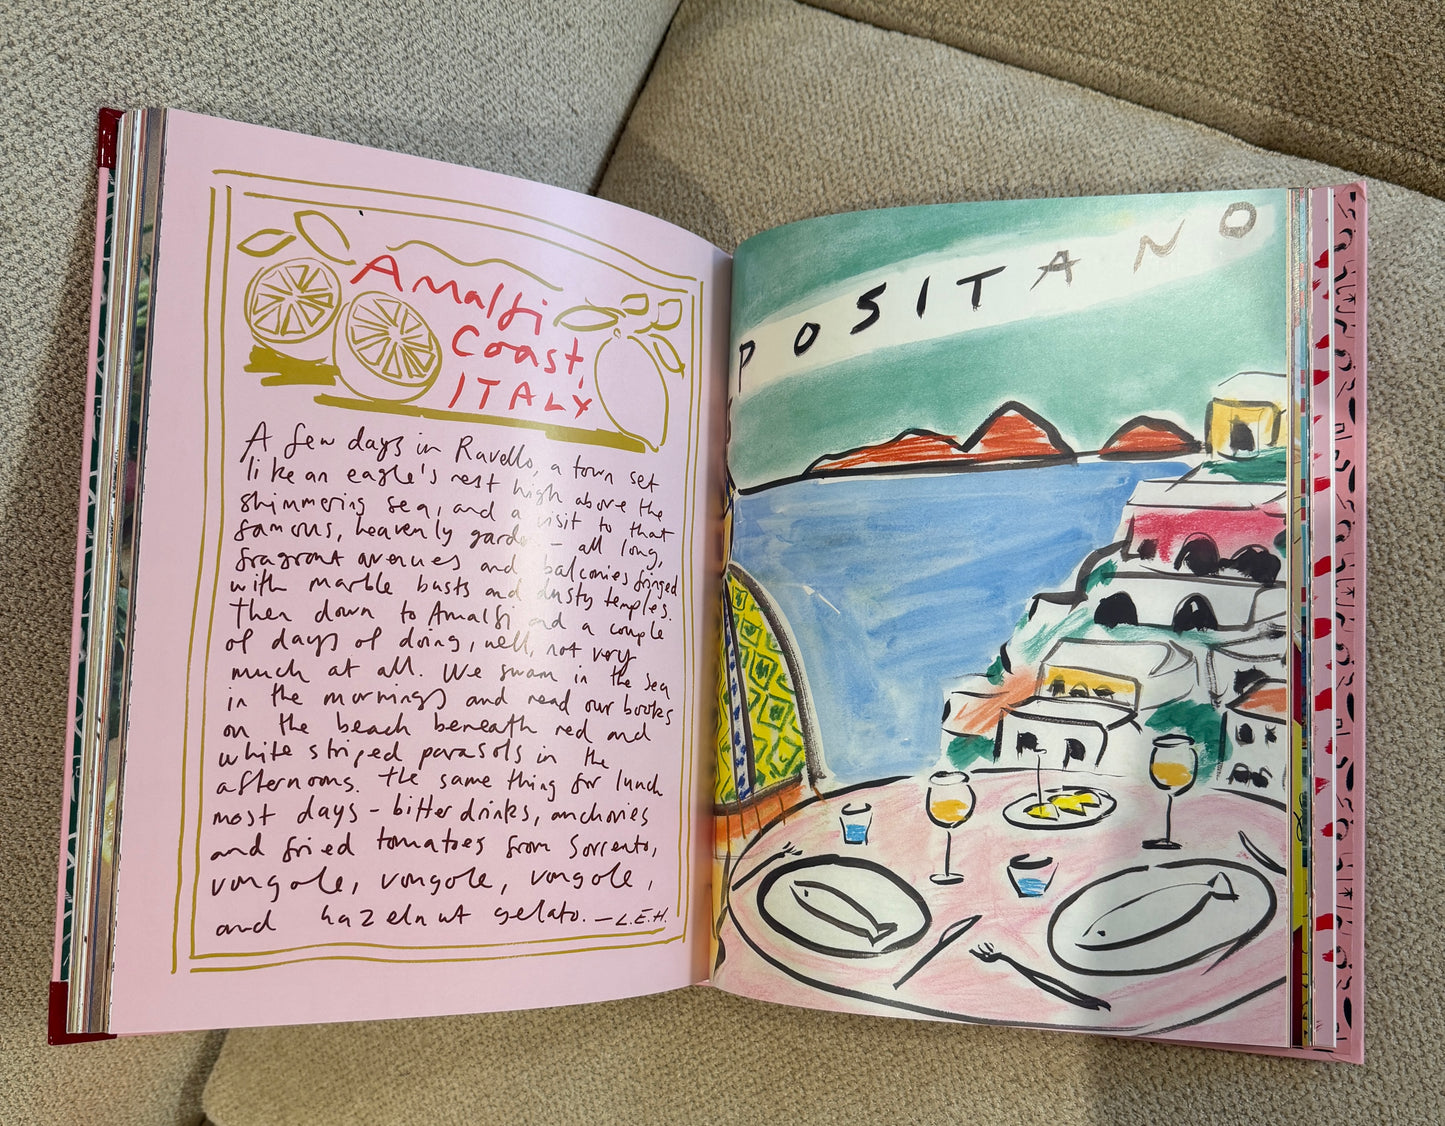 Amalfi
Coast,
ITALY
A few days in Ravello, a town set
like an eagle's nest high above the
shimmering sea, and a visit to that
famous, heavenly garden - all long,
fragrant avenues and balconies fringed
with marble busts and dusty temples.
Then down to Amalfi and a couple
of days of doing, well, not very
much at all. We swam in the sea
in the mornings and read our books
on the beach beneath red and
white striped parasols in the
afternoons. The same thing for lunch
most days - bitter drinks, anchovies
and fried tomatoes from Sorrento,
vongole, vongole, vongole,
and hazelnut gelato. - L.E.H.
POSITANO